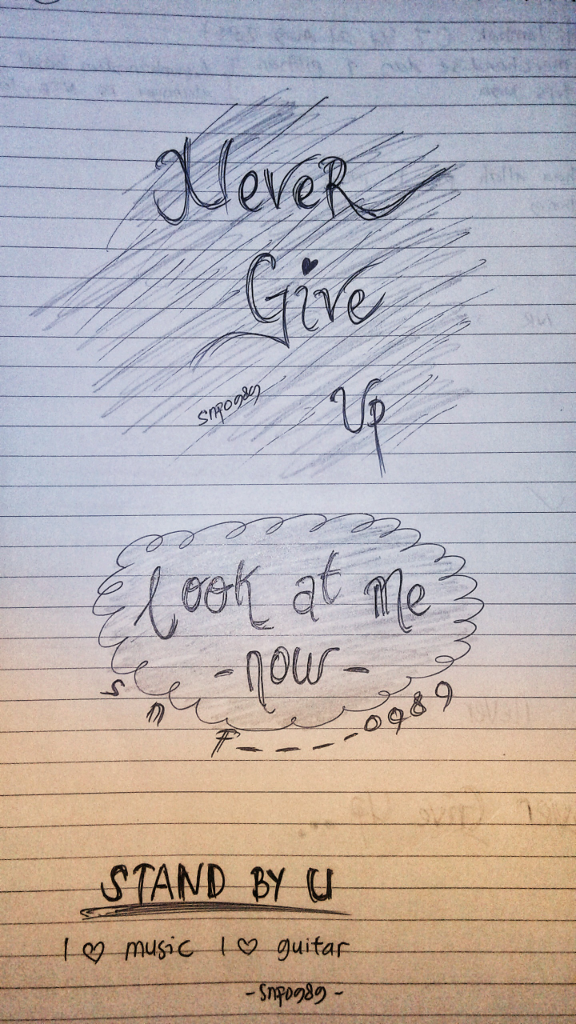 Never
Give
Up
snf0989
Look at me
-now-
s n F----0989
STAND BY U
I ♡ music I ♡ guitar
-snf0989-